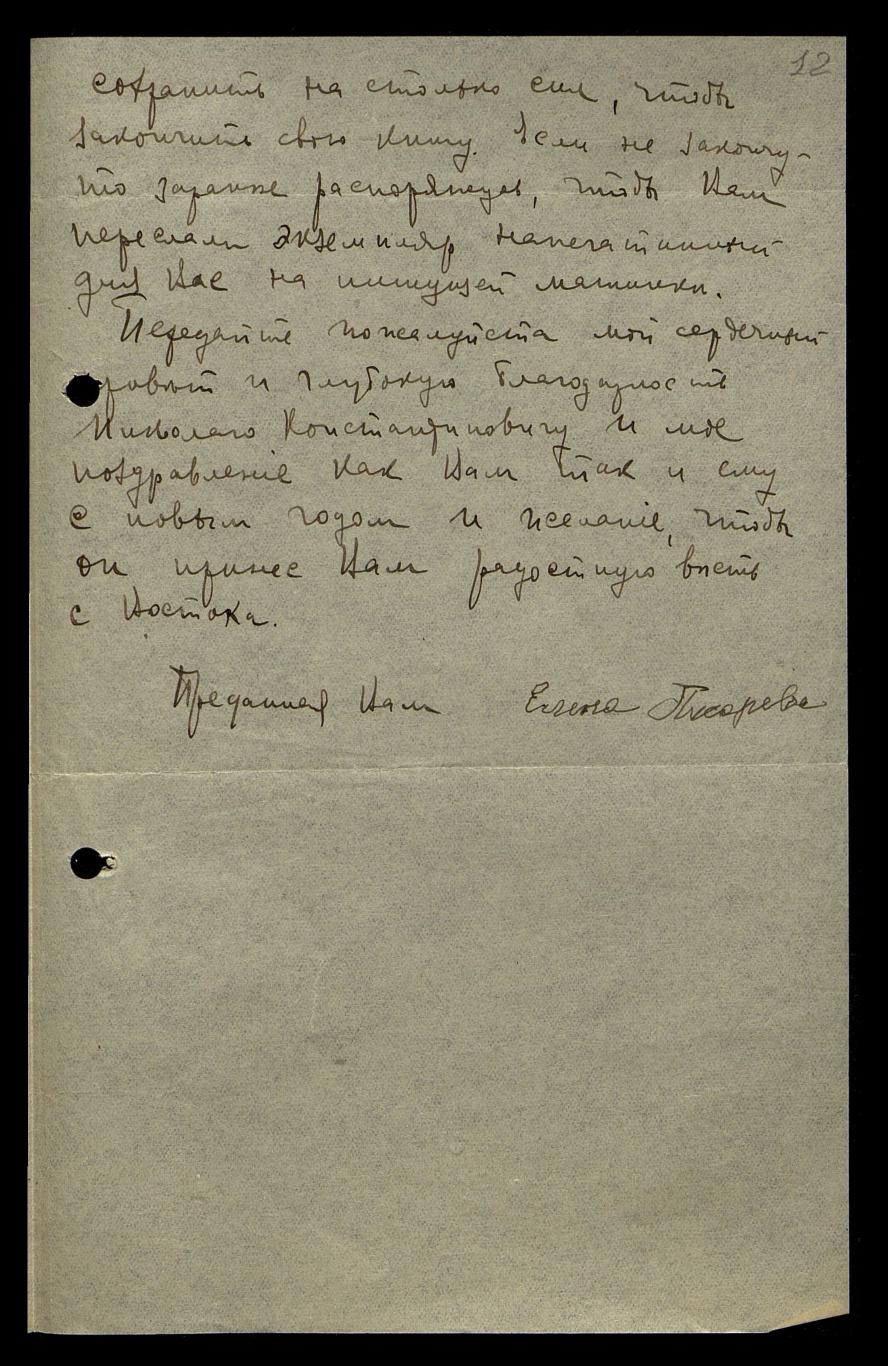 12
сохранить на столько сил, чтобы
закончить свою книгу. Если не закончу –
то заранее распоряжусь, чтобы Вам
переслали экземпляр напечатанный
для Вас на пишущей машинки.
Передайте пожалуйста мой сердечный
привѣт и глубокую благодарность
Николаю Константиновичу и мое
поздравленiе как Вам так и ему
с новым годом и желанiе, чтобы
он принес Вам радостную вѣсть
с Востока.
Преданная Вам Елена Писарева